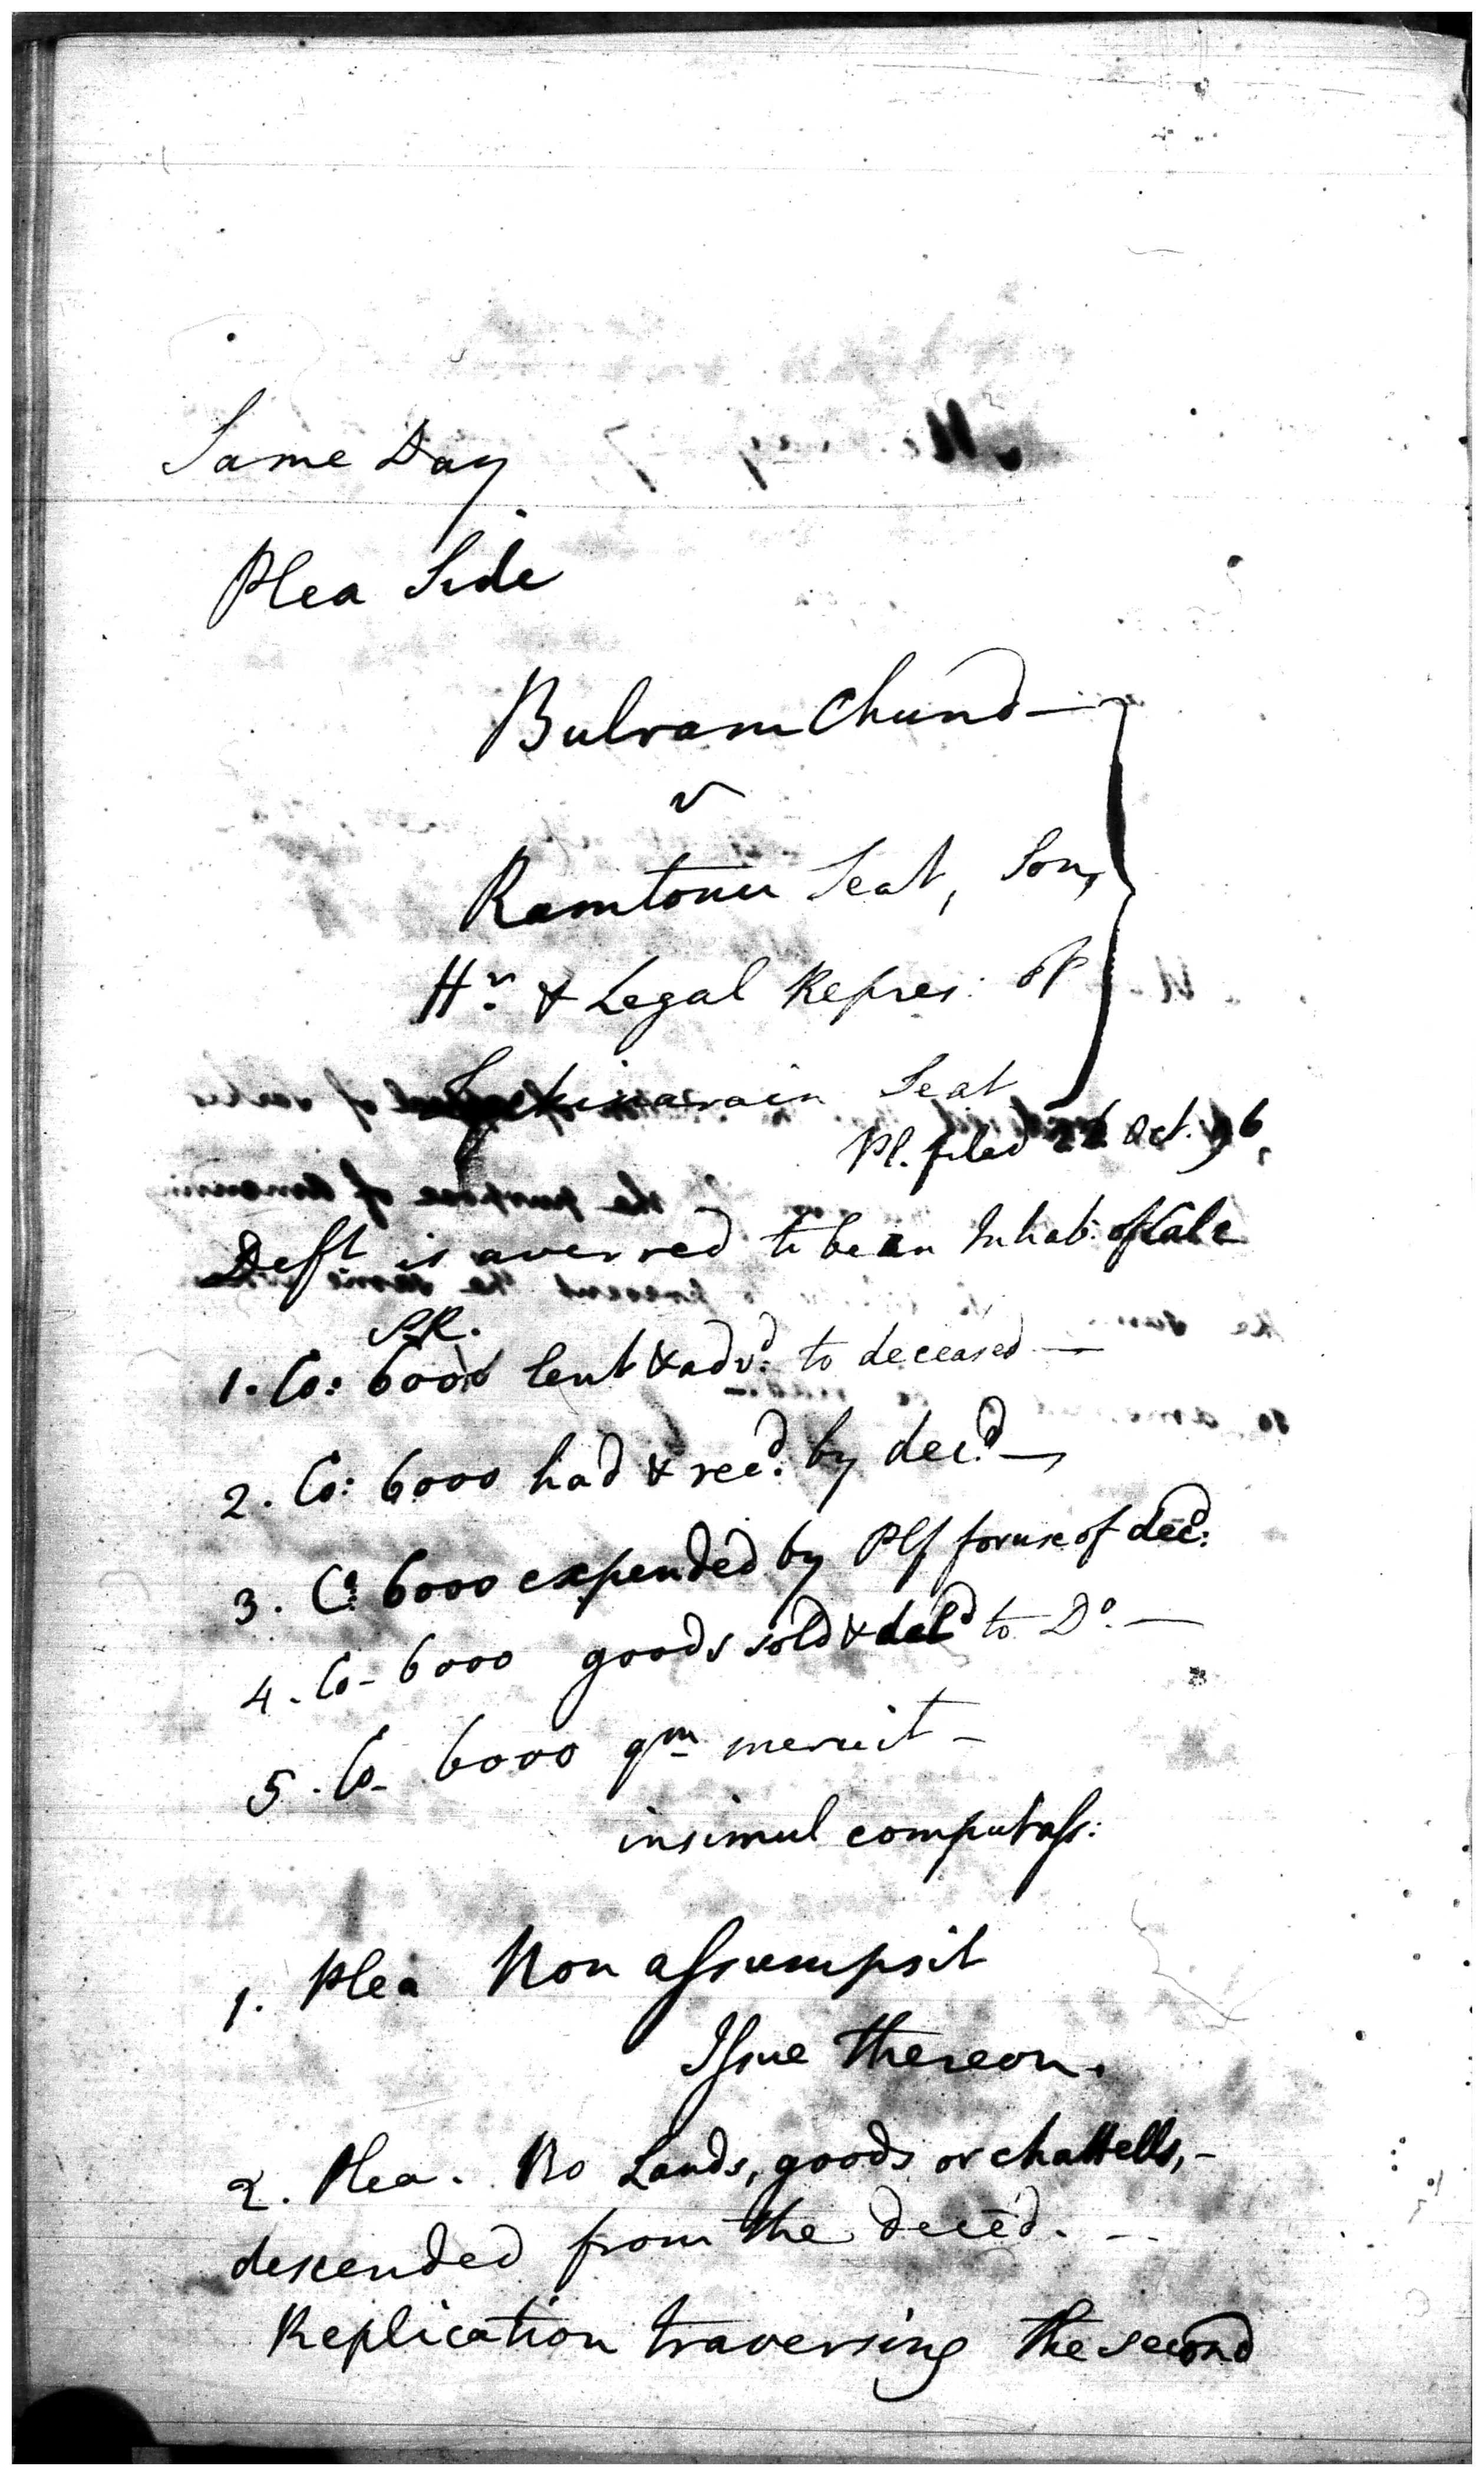 Same Day
Plea Side
Bulram Chund
v
Ramtonu Seat, Son,
Hr. & Legal Repres: of
Seat
Pl. filed Oct. 96,
Deft is averred to be an Inhab: of Calc
SR.
1. Co: 6000 lent & advd: to deceased —
2. Co: 6000 had & recd: by decd. —
3. Co: 6000 expended by Plf for use of decd:
4. Co - 6000 goods sold & deld to Do. —
5. Co - 6000 qm meruit -
insimul computass:
1. Plea Non assumpsit
Issue thereon.
2. Plea. No Lands, goods or chattells, -
descended from the deced. —
Replication traversing the second